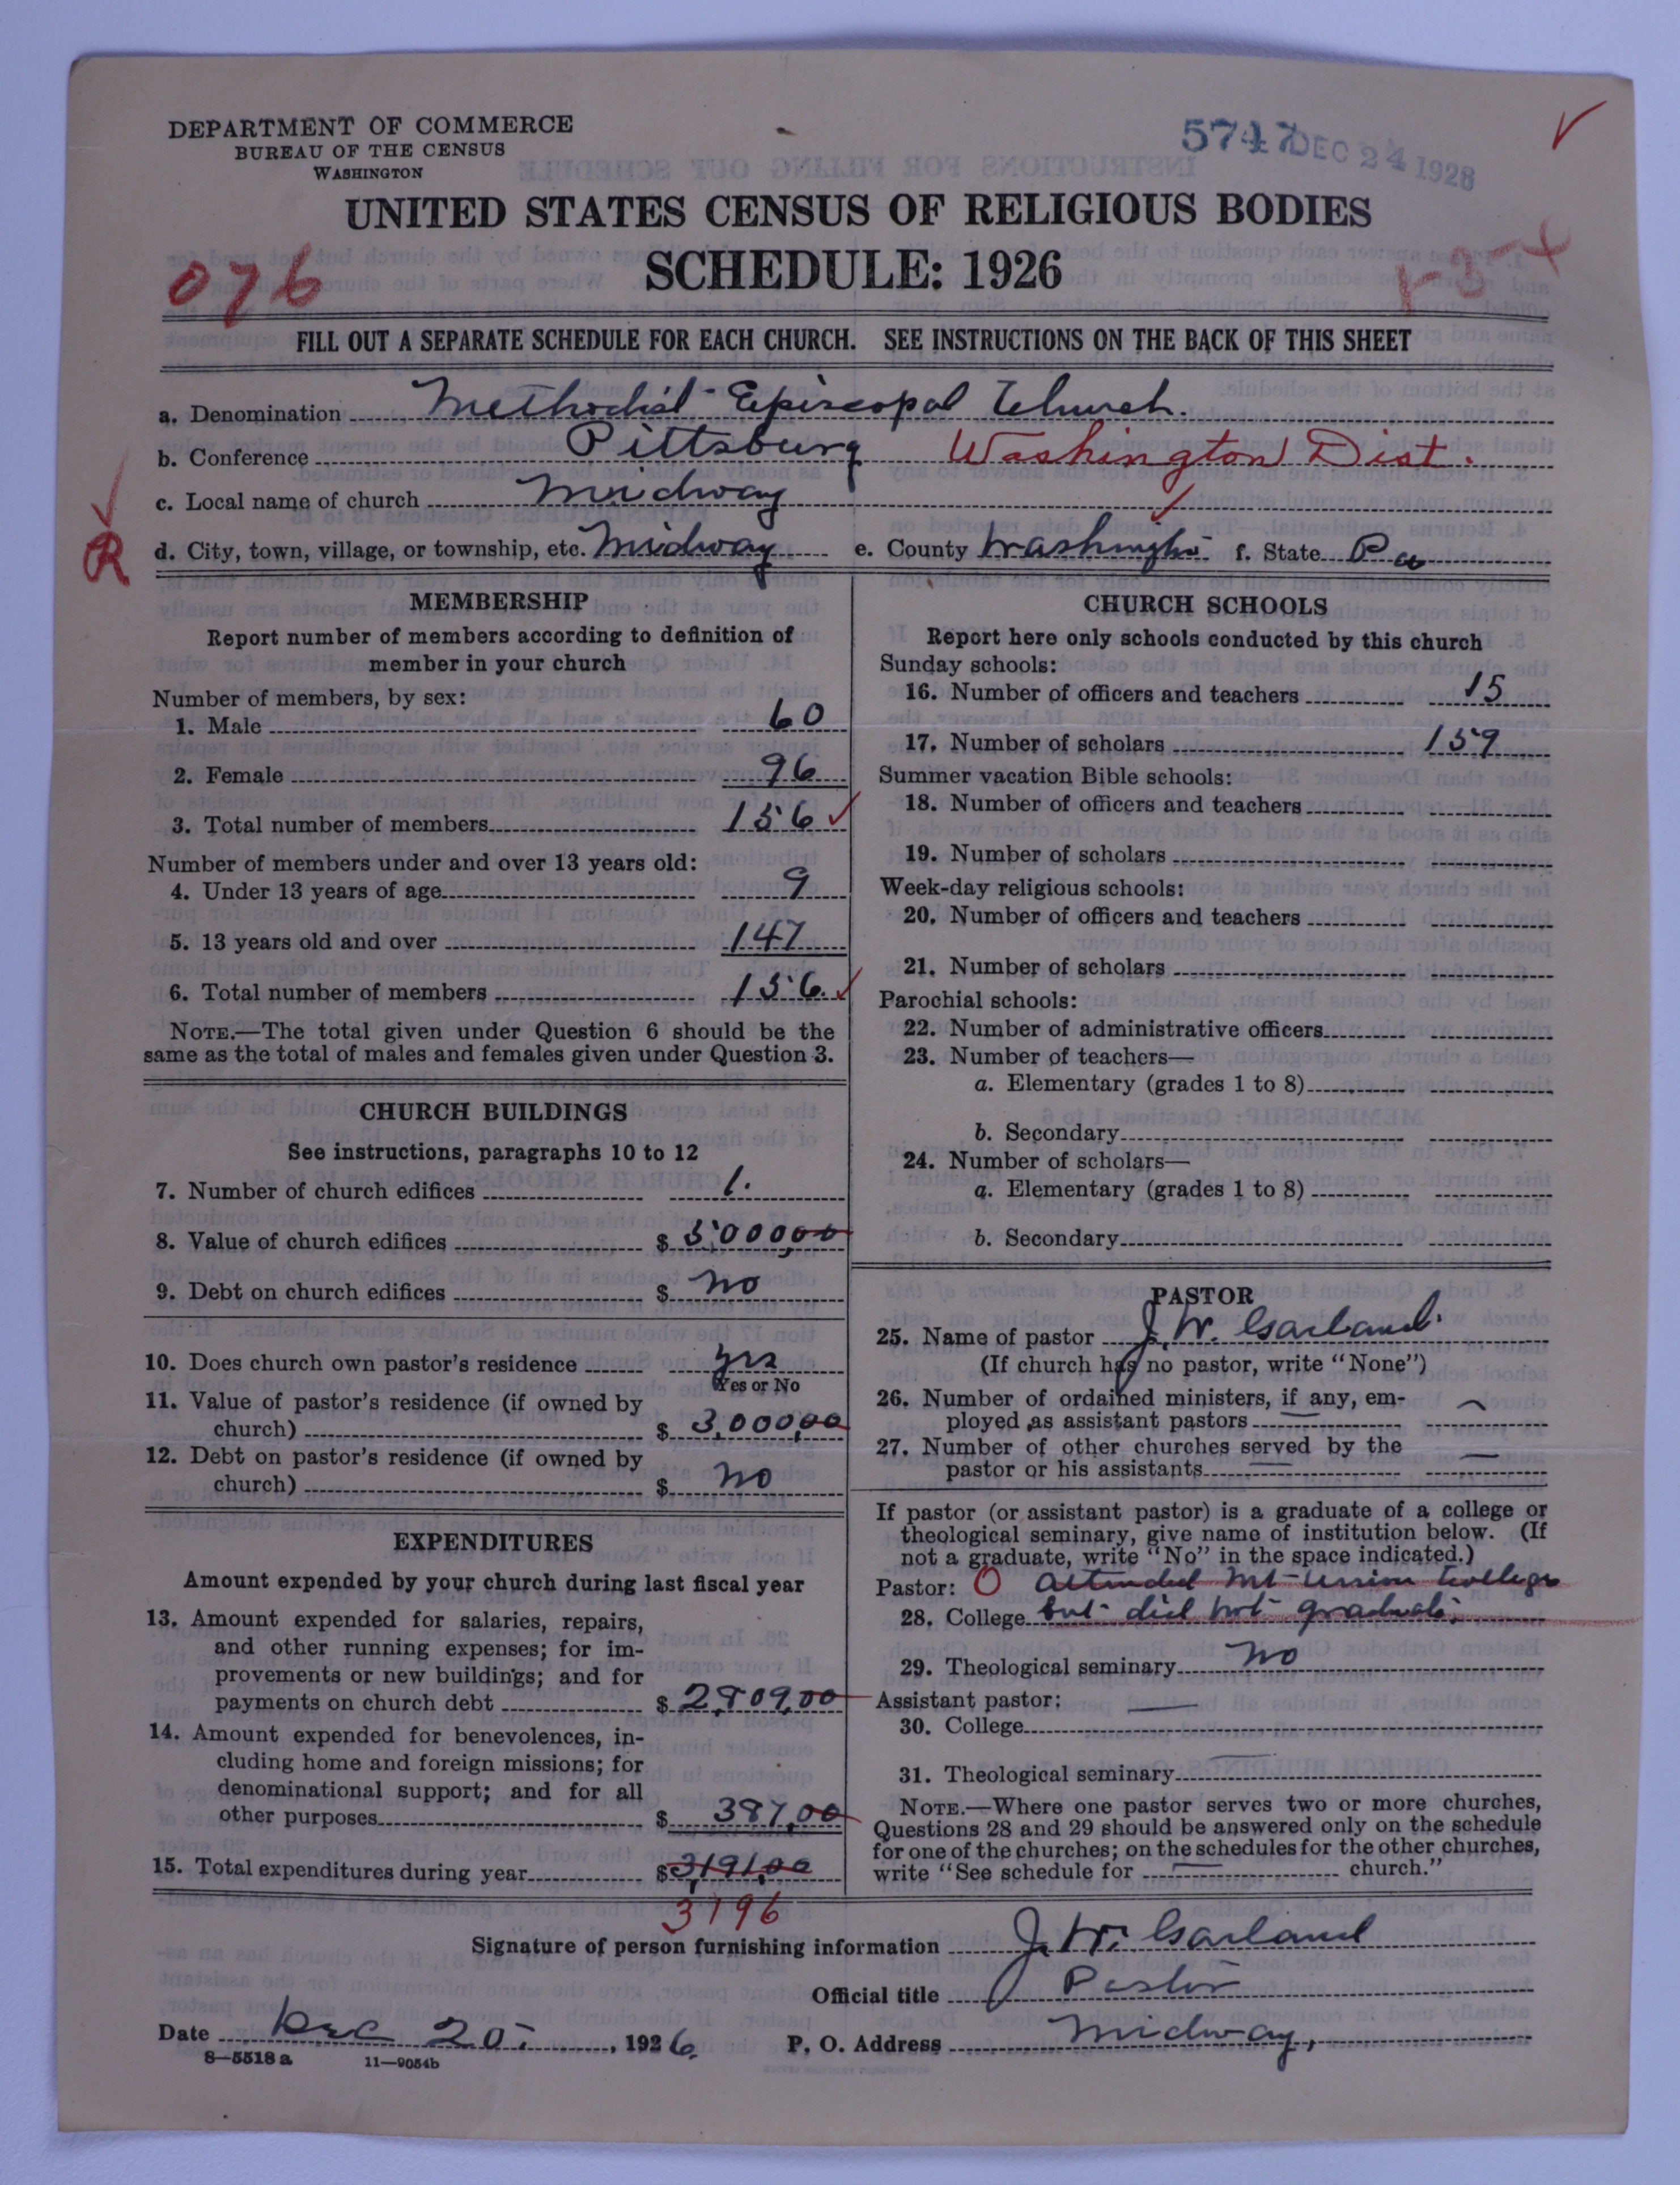 DEPARTMENT OF COMMERCE
BUREAU OF THE CENSUS
WASHINGTON
5747 DEC 24 1928
UNITED STATES CENSUS OF RELIGIOUS BODIES
SCHEDULE: 1926
076
FILL OUT A SEPARATE SCHEDULE FOR EACH CHURCH. SEE INSTRUCTIONS ON THE BACK OF THIS SHEET
a. Denomination Methodist Episcopal Church.
b. Conference Pittsburg Washington Dist.
c. Local name of church Midway
R
d. City, town, village, or township, etc. Midway e. County Washington f. State Pa
MEMBERSHIP
Report number of members according to definition of
member in your church
Number of members, by sex:
1. Male 60
2. Female 96
3. Total number of members 156
Number of members under and over 13 years old:
4. Under 13 years of age 9
5. 13 years old and over 147
6. Total number of members 156.
NOTE.—The total given under Question 6 should be the
same as the total of males and females given under Question 3.
CHURCH BUILDINGS
See instructions, paragraphs 10 to 12
7. Number of church edifices 1.
8. Value of church edifices $ 5000,00
9. Debt on church edifices $ no
10. Does church own pastor's residence yes
Yes or No
11. Value of pastor's residence (if owned by
church) $ 3,000,00
12. Debt on pastor's residence (if owned by
church) $ no
EXPENDITURES
Amount expended by your church during last fiscal year
13. Amount expended for salaries, repairs,
and other running expenses; for im-
provements or new buildings; and for
payments on church debt $ 2,809,00
14. Amount expended for benevolences, in-
cluding home and foreign missions; for
denominational support; and for all
other purposes $ 387,00
15. Total expenditures during year $ 3,191,00
3196
CHURCH SCHOOLS
Report here only schools conducted by this church
Sunday schools:
16. Number of officers and teachers 15
17. Number of scholars 159
Summer vacation Bible schools:
18. Number of officers and teachers
19. Number of scholars
Week-day religious schools:
20. Number of officers and teachers
21. Number of scholars
Parochial schools:
22. Number of administrative officers
23. Number of teachers—
a. Elementary (grades 1 to 8)
b. Secondary
24. Number of scholars—
a. Elementary (grades 1 to 8)
b. Secondary
PASTOR
25. Name of pastor J. W. Garland.
(If church has no pastor, write "None")
26. Number of ordained ministers, if any, em-
ployed as assistant pastors —
27. Number of other churches served by the
pastor or his assistants —
If pastor (or assistant pastor) is a graduate of a college or
theological seminary, give name of institution below. (If
not a graduate, write "No" in the space indicated.)
Pastor: O attended Mt Union College
28. College but did not graduate.
29. Theological seminary No
Assistant pastor: —
30. College
31. Theological seminary
NOTE.—Where one pastor serves two or more churches,
Questions 28 and 29 should be answered only on the schedule
for one of the churches; on the schedules for the other churches,
write "See schedule for — church."
Signature of person furnishing information J. W. Garland
Official title Pastor
Date Dec 20, 1926. P. O. Address Midway,
8—5518 a 11—9054b